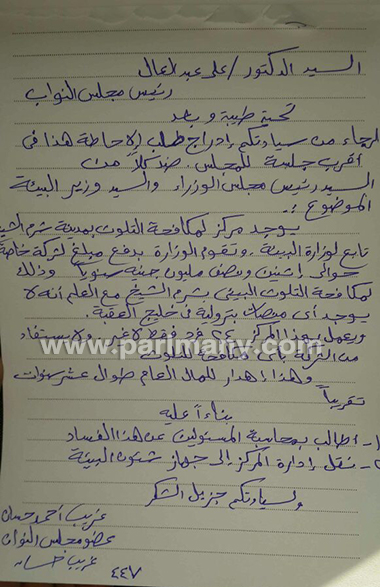 السيد الدكتور / على عبد العال
رئيس مجلس النواب
تحية طيبة وبعد
الرجاء من سيادتكم إدراج طلب الإحاطة هذا فى
أقرب جلسة للمجلس. ضد كلاً من
السيد رئيس مجلس الوزراء والسيد وزير البيئة
الموضوع :-
يوجد مركز لمكافحة التلوث بمدينة شرم الشيخ
تابع لوزارة البيئة وتقوم الوزارة بدفع مبلغ لشركة خاصة
حوالى إثنين ونصف مليون جنيه سنوياً وذلك
لمكافحة التلوث البيئى بشرم الشيخ مع العلم أنه لا
يوجد أى منصات بترولية فى خليج العقبة.
ويعمل بهذا المركز ٢٤ فرد فقط لاغير ولا يستفاد
من الشركة بأى مكافحة للتلوث
www.parlmany.com
وهذا إهدار للمال العام طوال عشر سنوات
تقريباً
بناءاً عليه
١- أطالب بمحاسبة المسئولين عن هذا الفساد
٢- نقل إدارة المركز إلى جهاز شئون البيئة
ولسيادتكم جزيل الشكر
غريب أحمد حسان
عضو مجلس النواب
غريب حسان
٤٤٧